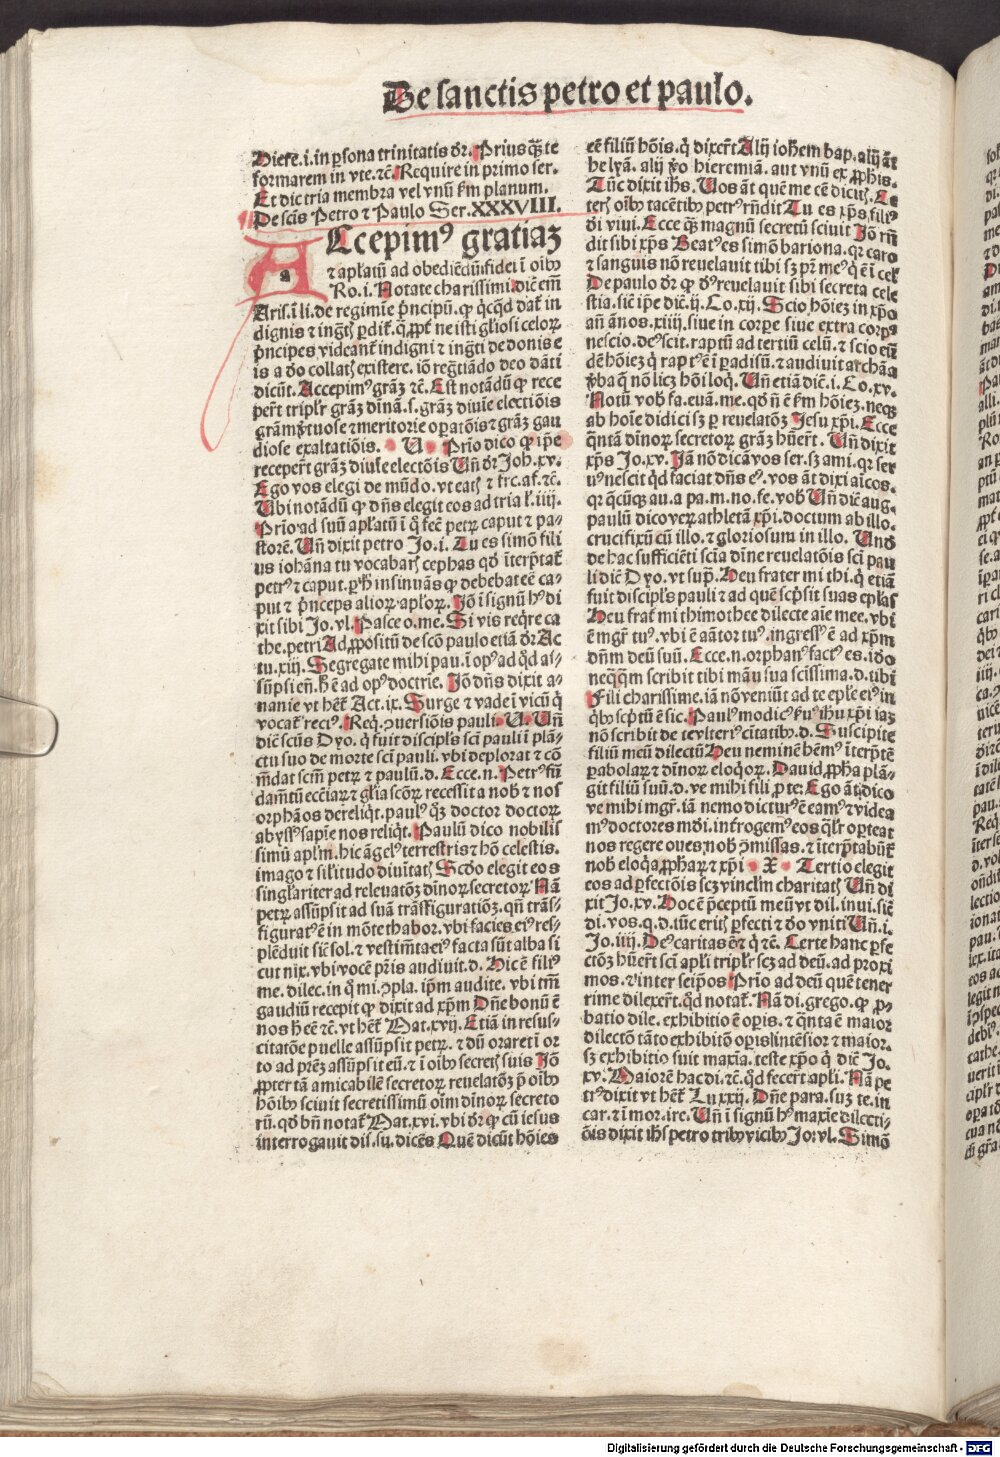 De sanctis petro et paulo.
Hiere.i.in ꝑsona trinitatis dr̄. Prius qꝫ te
formarem in vte.ꝛc̄. Require in primo ser.
Et dic tria membra vel vnū ẜm planum.
De scīs Petro ⁊ Paulo Ser.XXXVIII.
ACcepimꝰ gratiaꝫ
⁊ apl̄atū ad obediēdū fidei ī oībꝰ
Ro.i. Notate charissimi. dic̄ em̄
Aris.ī li.de regimīe pn̄cipū. ꝙ qͥcqͥd dat᷑ in
dignis ⁊ ingͣtꝭ ꝑdit᷑. q̄. ꝓpt᷑ ne isti gl̄iosi celoꝝ
pn̄cipes videant᷑ indigni ⁊ ingͣti de donis e
is a deo collatꝭ existere. iō regr̄tiādo deo dāti
dicūt. Accepimꝰ grāꝫ ꝛc̄. Est notādū ꝙ rece
pert᷑ triplr̄ grāꝫ dīnā.s.grāꝫ diuīe electiōis
grām ꝟtuose ⁊ meritorie oꝑatōis ⁊ grāꝫ gau
diose exaltatiōis. U Prīo dico ꝙ ip̄e
recepert᷑ grāꝫ diuīe electōis Un̄ dr̄ Joh.xv.
Ego vos elegi de mūdo. vt eatꝭ ⁊ frc.af.ꝛc̄.
Ubi notādū ꝙ dn̄s elegit eos ad tria l̄.iiij.
Prīo ad suū apl̄atū ī qͦ fec̄ petꝝ caput ⁊ pa-
storē. Un̄ dixit petro Jo.i. Tu es simō fili
us iohāna tu vocaberꝭ cephas qd̄ īterp̄tat᷑
petrꝰ ⁊ caput. ꝑ hͦ insinuās ꝙ debebat eē ca-
put ⁊ pn̄ceps alioꝝ aploꝝ. Jō ī signū hꝰ di
xit sibi Jo.vl. Pasce o.me. Si vis reqͥre ca
the.petri Ad ꝓpositū de scō paulo etiā dr̄ Ac
tu.xiij. Segregate mihi pau.ī opꝰ ad qd̄ as-
sūpsi en̄.h̄ ē ad opꝰ doctrie. Jō dn̄s dixit a-
nanie vt hēt᷑ Act.ix. Surge ⁊ vade ī vicū qͥ
vocat᷑ rectꝰ. Req̄. ꝯuersiōis pauli. U. Un̄
dic̄ scūs Dyo. qͥ fuit discipl̄s scī pauli ī plā-
ctu suo de morte scī pauli. vbi deplorat ⁊ cō
mēdat scm̄ petꝝ ⁊ paulū.d. Ecce.n. Petrꝰ fūn
damētū ecc̄iaꝝ ⁊ gl̄ia scōꝝ recessit a nobꝭ ⁊ nos
orphāos dereliqͥt.paulꝰ qͦꝫ doctor doctoꝝ
abyssꝰ sapīe nos reliqͥt. Paulū dico nobilis
simū aplm̄.hic āgelꝰ terrestris ⁊ hō celestis.
imago ⁊ silitudo diuītatꝭ Scd̄o elegit eos
singl̄ariter ad reuelatōꝫ dīnoꝝ secretoꝝ Nā
petꝝ assūpsit ad suā trāsfiguratiōꝫ. qn̄ trās-
figuratꝰ ē in mōte thabor. vbi facies eiꝰ res-
plēduit sic̄ sol.⁊ vestimēta eiꝰ facta sūt alba si
cut nix. vbi vocē pr̄is audiuit.d. Hic ē filiꝰ
me.dilec.in qͦ mi.ꝯpla.ip̄m audite. vbi tm̄
gaudiū recepit ꝙ dixit ad xp̄m Dn̄e bonū ē
nos h̄ eē ꝛc̄. vt hēt᷑ Mat.xvij. Etiā in resus-
citatōe puelle assūpsit petꝝ. ⁊ dū oraret ī or
to ad prēꝫ assūpsit eū. ⁊ ī oībꝰ secretꝭ suis Jō
ꝓpter tā amicabilē secretoꝝ reuelatōꝫ p̄ oībꝰ
hōibꝰ sciuit secretissimū oīm dīnoꝝ secreto
rū. qd̄ bn̄ notat᷑ Mat.xvi. vbi dr̄ ꝙ cū iesus
interrogauit dis.su.dicēs Quē dicūt hōies
eē filiū hōis. qͥ dixert᷑ Alij iohēm bap. alij āt
helyā. alij ꝟo hieremiā. aut vnū ex ꝓphis.
Tūc dixit ihs̄. Uos āt quē me eē dicitꝭ. Ce
terꝭ oībꝰ tacētibꝰ petrꝰ rn̄dit Tu es xp̄s filiꝰ
dī viui. Ecce qͣꝫ magnū secretū sciuit Jō rn̄
dit sibi xp̄s Beatꝰ es simō bariona. qꝛ caro
⁊ sanguis nō reuelauit tibi sꝫ pr̄ meꝰ qͥ ē ī cel̄
De paulo dr̄ ꝙ dꝰ reuelauit sibi secreta cele
stia. sic̄ ip̄e dic̄ .ij. Co.xij. Scio hōiez in xp̄o
an̄ ānos.xiiij. siue in corpe siue extra corpꝰ
nescio.deꝰ scit. raptū ad tertiū celū. ⁊ scio eū
dē hōiez qͥ raptꝰ ē ī ꝑadisū. ⁊ audiuit archāa
ꝟba q̄ nō licꝫ hōi loqͥ. Un̄ etiā dic̄ .i. Co.xv.
Notū vobꝭ fa.euā.me. qd̄ n̄ ē ẜm hōiez. neqꝫ
ab hoīe didici sꝫ ꝑ reuelatōꝫ Jesu xp̄i. Ecce
qͣntā dīnoꝝ secretoꝝ grāꝫ hūert᷑. Un̄ dixit
xp̄s Jo.xv. Jā nō dicā vos ser. sꝫ ami. qꝛ ser
uꝰ nescit qd̄ faciat dn̄s eiꝰ. vos āt dixi aīcos.
qꝛ q̄cūqꝫ au.a pa.m.no.fe.vobꝭ Un̄ dic̄ aug.
paulū dico veꝝ athletā xp̄i. doctum ab illo.
crucifixū cū illo. ⁊ gloriosum in illo. Und̄
de hac sufficiēti scīa dīne reuelatōis scī pau
li dic̄ Dyo. vt supͣ. Heu frater mi thi. qͥ etiā
fuit discipl̄s pauli ⁊ ad quē scp̄sit suas ep̄las
Heu frat᷑ mi thimothee dilecte aīe mee. vbi
ē mgr̄ tuꝰ. vbi ē aātor tuꝰ. ingressꝰ ē ad xp̄m
dn̄m deū suū. Ecce.n.orphanꝰ factꝰ es. iō
neqͣqͣm scribit tibi māu sua scissima.d. ubi
Fili charissime. iā nō veniūt ad te ep̄le eiꝰ in
qͥbꝰ scp̄tū ē sic. Paulꝰ modicꝰ ẜuꝰ ihu xp̄i iaꝫ
nō scribit de te vlteriꝰ citatibꝰ.d. Suscipite
filiū meū dilectū Heu neminē hēmꝰ īterp̄tē
ꝑabolaꝝ ⁊ dīnoꝝ eloqͦꝝ. Dauid ꝓpha plā-
git filiū suū.d. ve mihi fili ꝓ te: Ego āt dico
ve mihi mgr̄. iā nemo dicturꝰ ē eamꝰ ⁊ videa
mꝰ doctores mdi. int̄rogemꝰ eos qͣl̄r oꝑteat
nos regere oues. nobꝭ ꝯmissas. ⁊ īterp̄tabūt᷑
nobꝭ eloqͥa ꝓphaꝝ ⁊ xp̄i X Tertio elegit
eos ad ꝑfectōis scꝫ vinclm̄ charitatꝭ Un̄ di
xit Jo.xv. Hoc ē p̄ceptū meū vt dil.inui.sic̄
di.vos.q.d.tūc eritꝭ ꝑfecti ⁊ deo vniti Un̄.i.
Jo.iiij. Deꝰ caritas ē ⁊ qͥ ꝛc̄. Certe hanc ꝑfe
ctōꝫ hūert᷑ scī apl̄i triplr̄ scꝫ ad deū. ad proxi
mos. ⁊ inter seip̄os Prīo ad deū quē tener
rime dilexert᷑. qd̄ notat᷑. Nā di.grego. ꝙ ꝓ-
batio dile. exhibitio ē oꝑis. ⁊ qͣnta ē maior
dilectō tāto exhibitō oꝑis intēsior ⁊ maior.
sꝫ exhibitio fuit maxīa. teste xp̄o qͥ dic̄ Jo.
xv. Maiorē hac di.ꝛc̄. qd̄ fecert᷑ apl̄i. Nā pe
trꝰ dixit vt hēt᷑ Lu xxij. Dn̄e para. suꝫ te. in
car.⁊ ī mor.ire. Un̄ ī signū hꝰ maxīe dilecti-
ōis dixit ihs̄ petro tribꝰ vicibꝰ Jo.vl. Simō
Digitalisierung gefördert durch die Deutsche Forschungsgemeinschaft - DFG